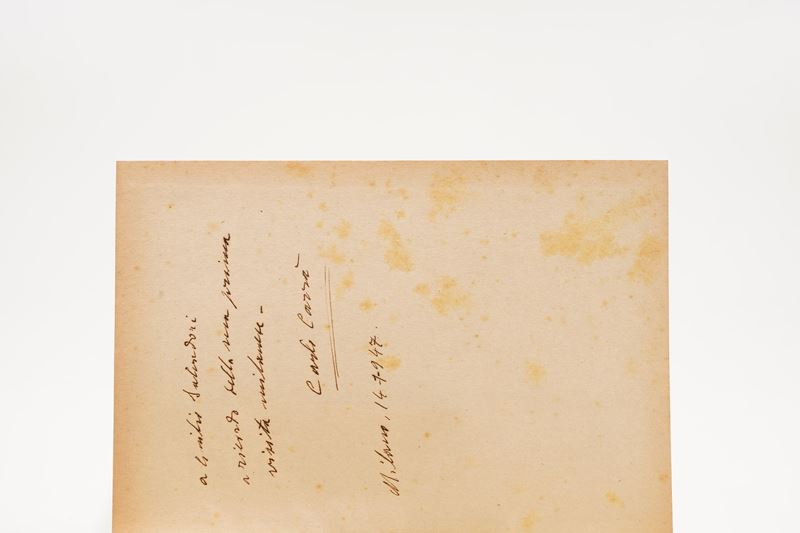 a Salvadori
a ricordo della sua prima
visita milanese –
Carlo Carrà
Milano, 14-7-947.